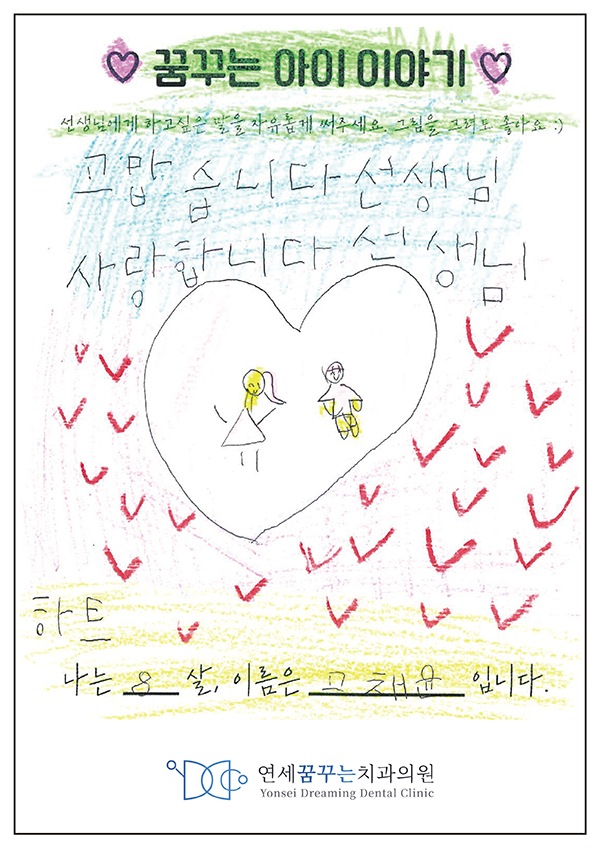 꿈꾸는 아이 이야기
선생님에게 하고싶은 말을 자유롭게 써주세요. 그림을 그려도 좋아요 :)
고맙습니다 선생님
사랑합니다 선생님
하트
나는 8 살, 이름은 고채윤 입니다.
연세꿈꾸는치과의원
Yonsei Dreaming Dental Clinic